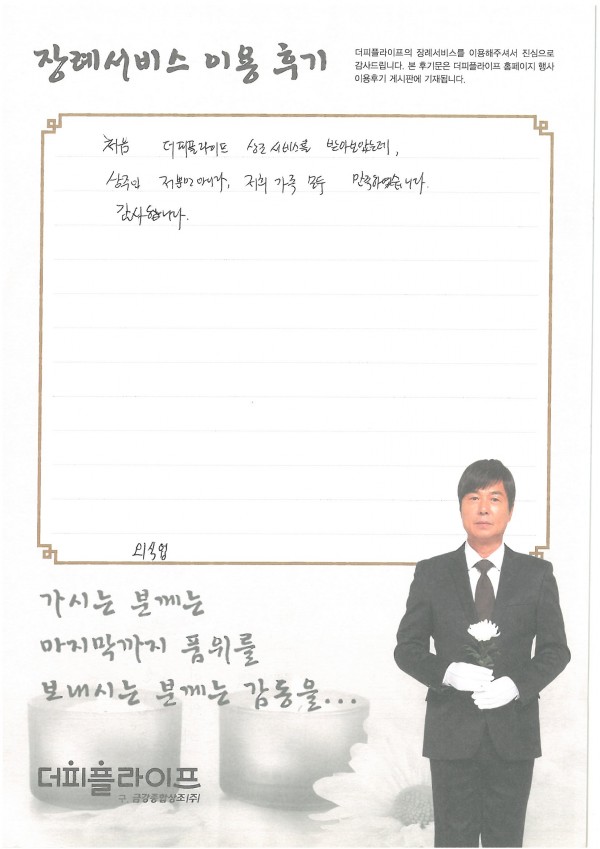 장례서비스 이용 후기
더피플라이프의 장례서비스를 이용해주셔서 진심으로
감사드립니다. 본 후기문은 더피플라이프 홈페이지 행사
이용후기 게시판에 기재됩니다.
처음 더피플라이프 상조 서비스를 받아보았는데,
상주인 저뿐만 아니라, 저희 가족 모두 만족하였습니다.
감사합니다.
가시는 분께는
마지막까지 품위를
보내시는 분께는 감동을...
더피플라이프
구. 금강종합상조(주)